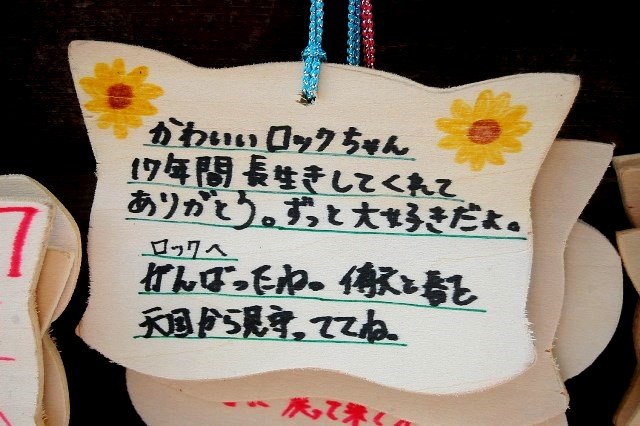 かわいいロックちゃん
17年間長生きしてくれて
ありがとう。ずっと大好きだよ。
ロックへ
がんばったね。倚天と春を
天国から見守っててね。
戻って来く